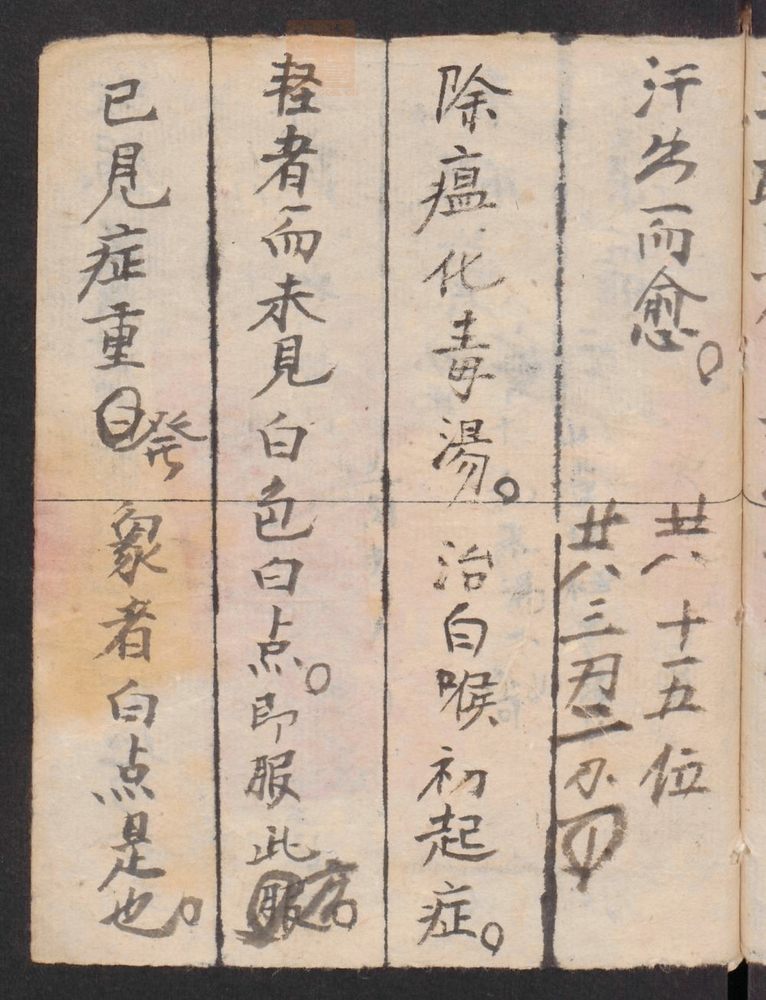 汗出而愈。
廿八 十一五位
廿八三
除瘟化毒湯。治白喉初起症。
轻者而未見白色白点。即服此方。
已見症重發象者白点是也。